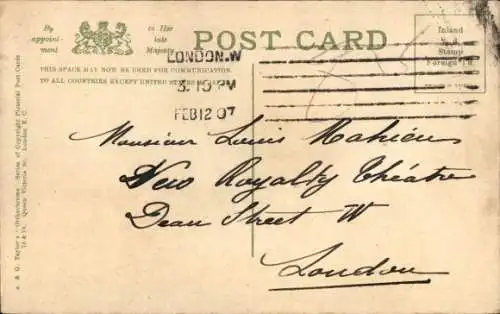 By
appoint-
ment
to Her
late
Majesty
POST CARD
Inland
½d.
Stamp
Foreign 1d.
THIS SPACE MAY NOT BE USED FOR COMMUNICATION
TO ALL COUNTRIES EXCEPT UNITED STATES
LONDON.W
3.15 PM
FEB 12 07
Monsieur Louis Mahieu
New Royalty Théatre
Dean Street W
London
A. & G. Taylor's "Orthochrome" Series of Copyright Pictorial Post Cards
Queen Victoria St. London E.C.